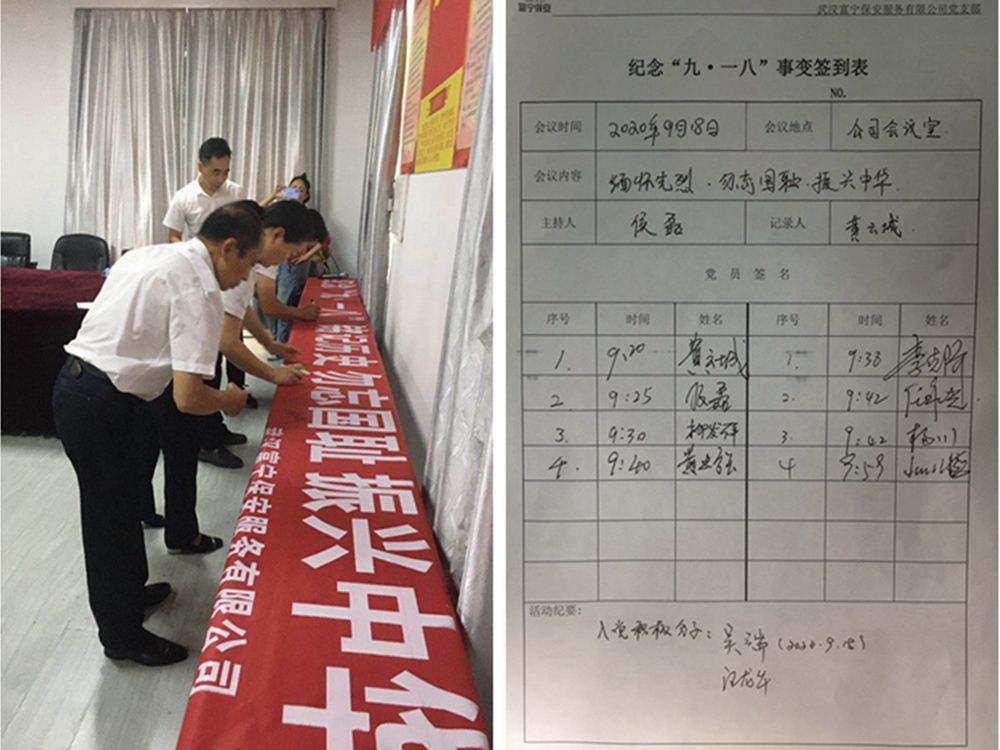 铭记历史 勿忘国耻·振兴中华
武汉富宁保安服务有限公司
富宁保安
武汉富宁保安服务有限公司党支部
纪念“九·一八”事变签到表
NO.
会议时间 2020年9月18日 会议地点 公司会议室
会议内容 缅怀先烈、勿忘国耻、振兴中华.
主持人 侯磊 记录人 黄云城
党 员 签 名
序号 时间 姓名 序号 时间 姓名
1. 9:20 黄云城 1. 9:38
2. 9:25 侯磊 2. 9:42
3. 9:30 3. 9:42 杨川
4. 9:40 4 9:59
活动纪要:
入党积极分子: 吴瑞 (2020.9.18)
汪龙华